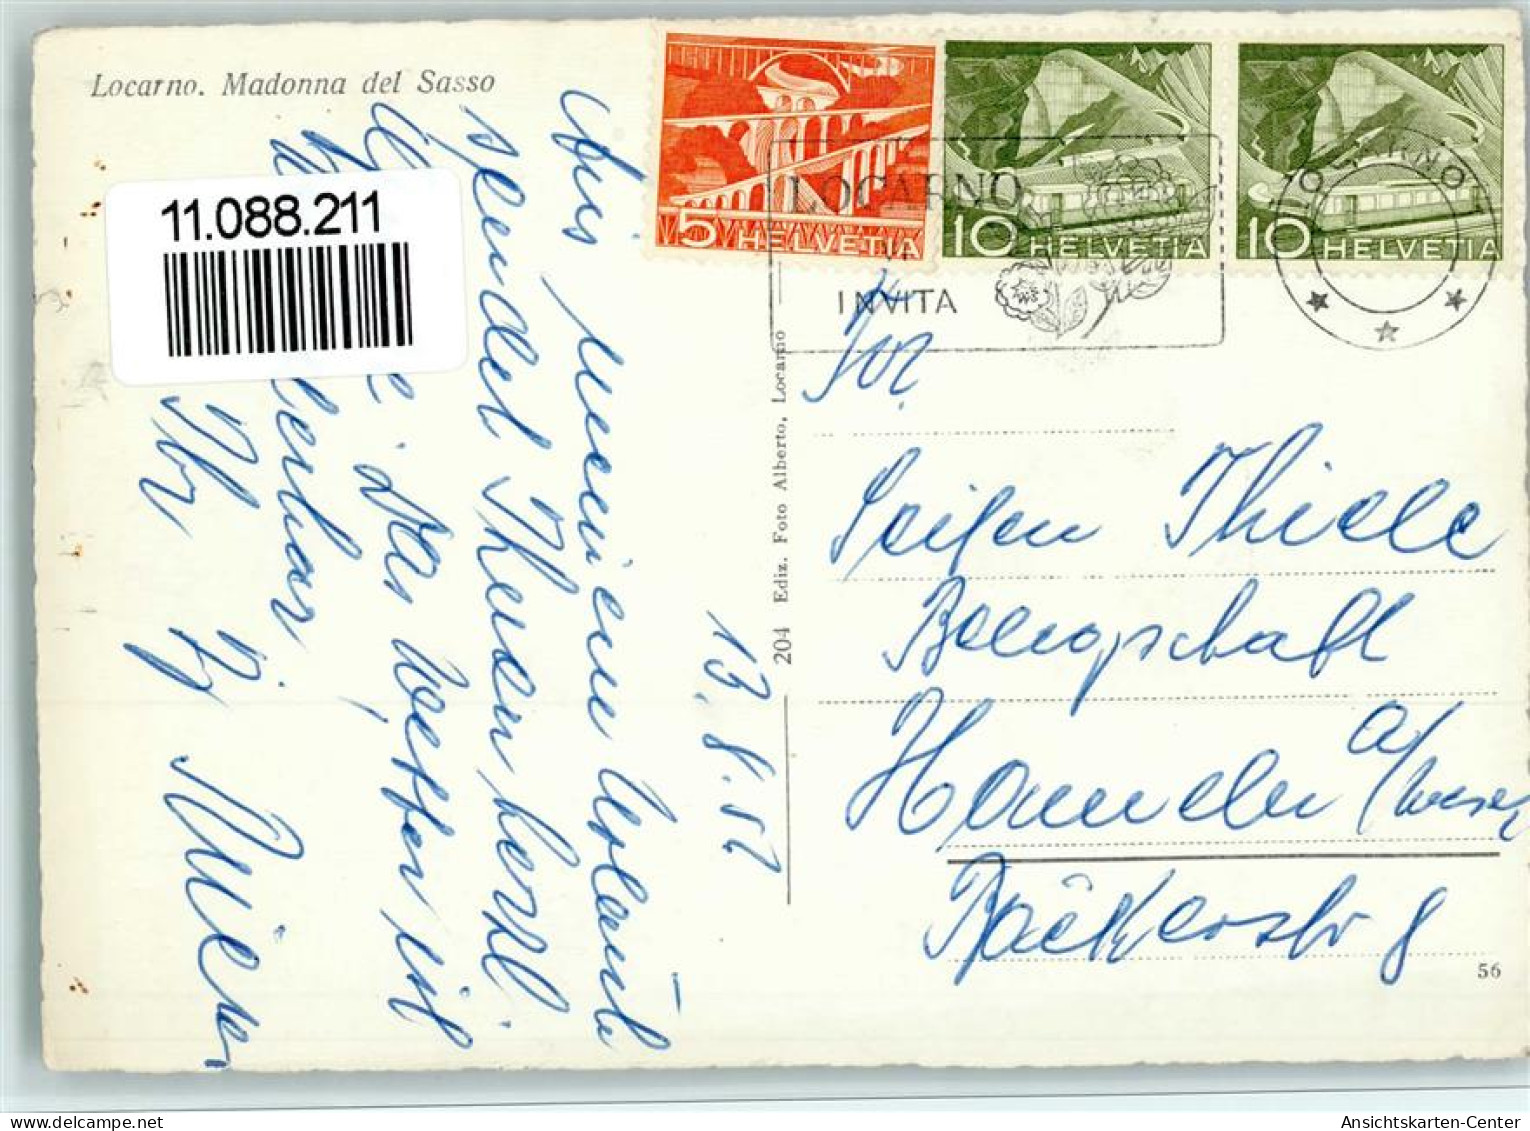 Locarno. Madonna del Sasso
11.088.211
5 HELVETIA
10 HELVETIA
10 HELVETIA
LOCARNO
INVITA
LOCARNO
Aus meinem Urlaub
sendet Ihnen herzl.
das Wetter ist
Ihr
13.8.52
204 Ediz. Foto Alberto, Locarno
Seifen Thiele
Belegschaft
Hameln a/Weser
Bäckerstr 8
56
Ansichtskarten-Center